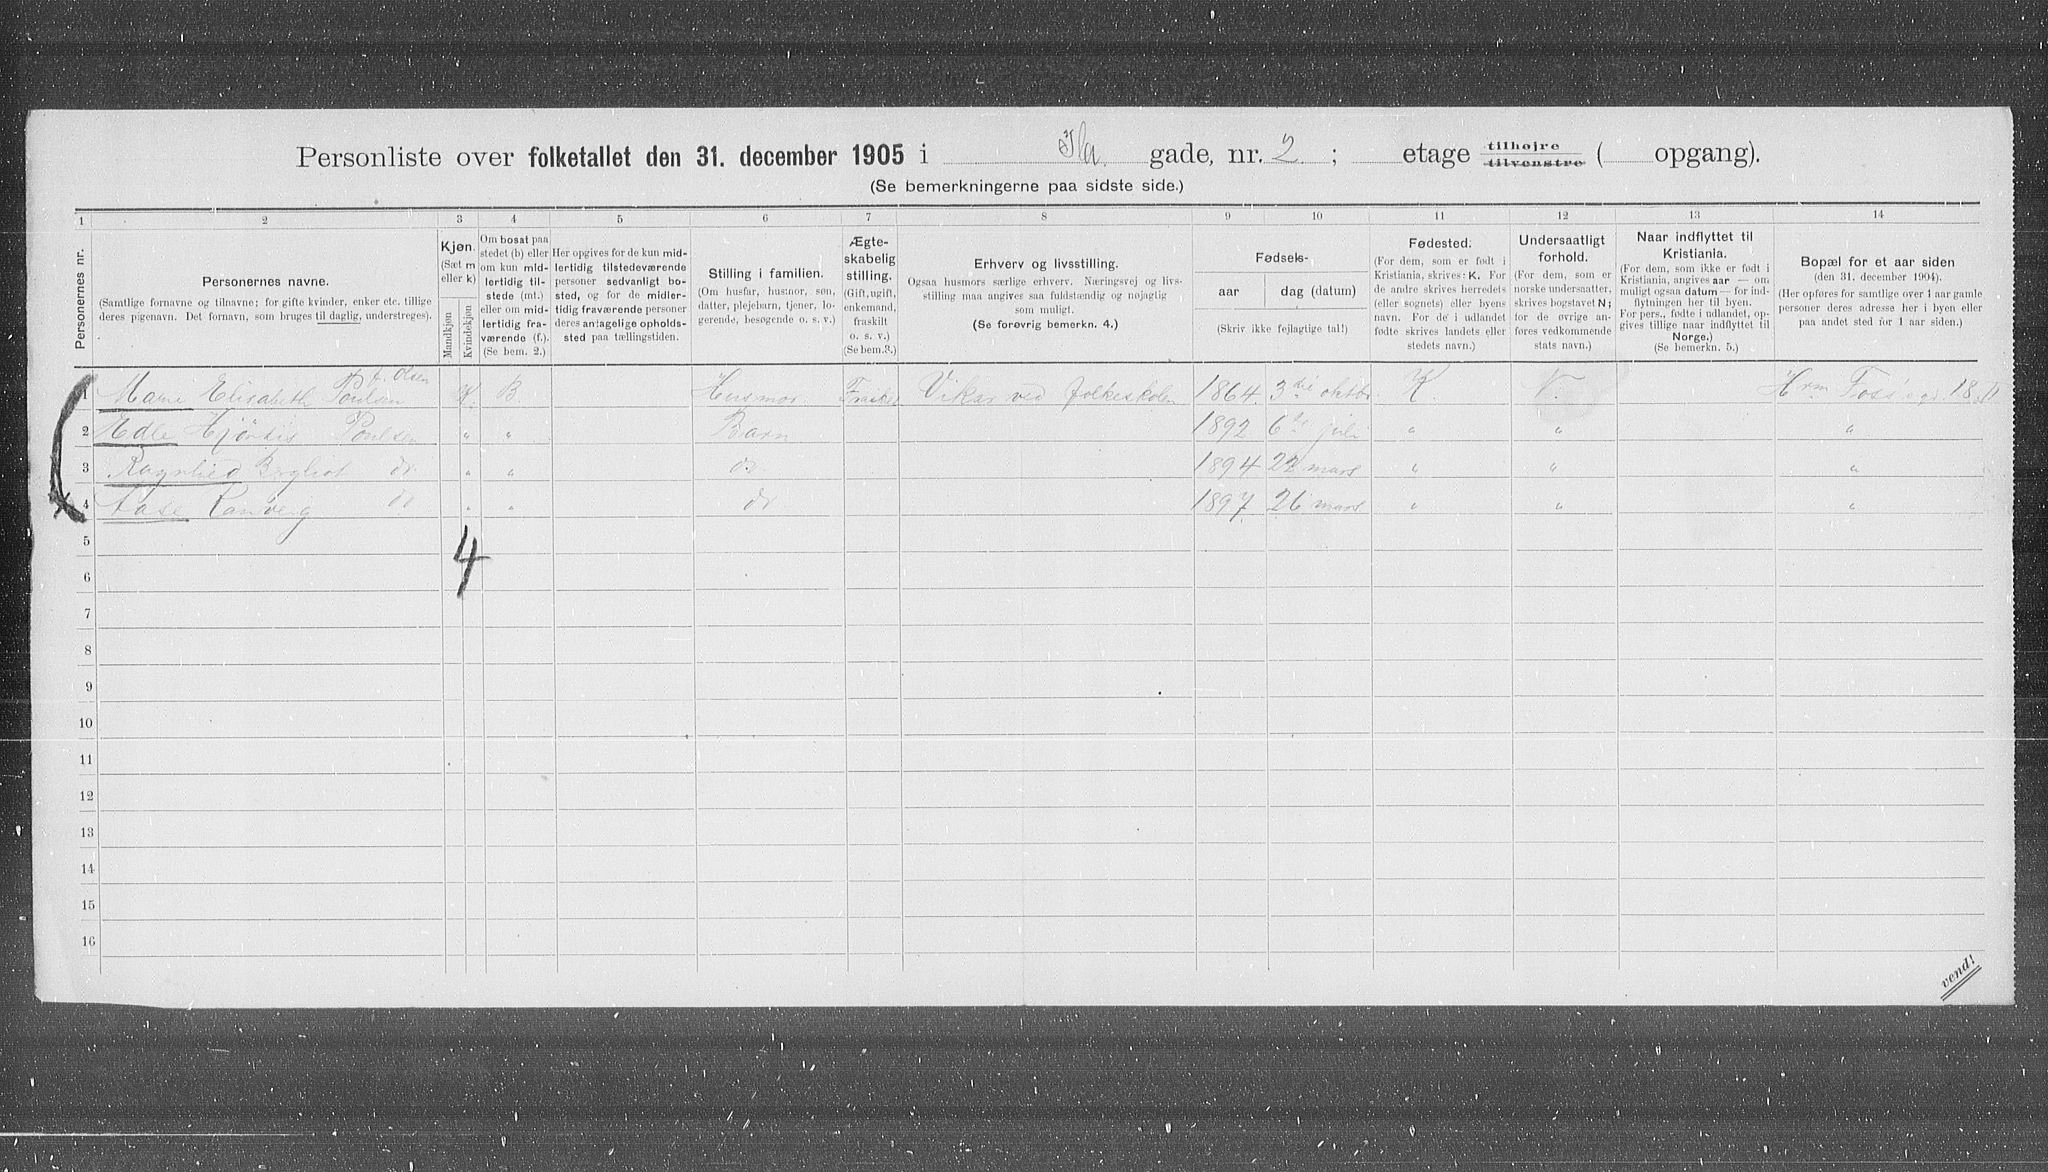 Personliste over folketallet den 31. december 1905 i Ila gade, nr. 2 ; etage tilhøjre tilvenstre ( opgang).
(Se bemerkningerne paa sidste side.)
1 2 3 4 5 6 7 8 9 10 11 12 13 14
Personernes nr.
Personernes navne.
(Samtlige fornavne og tilnavne; for gifte kvinder, enker etc. tillige
deres pigenavn. Det fornavn, som bruges til daglig, understreges).
Kjøn.
(Sæt m
eller k)
Mandkjøn
Kvindekjøn
Om bosat paa
stedet (b) eller
om kun mid-
lertidig til-
stede (mt.)
eller om mid-
lertidig fra-
værende (f.).
(Se bem. 2.)
Her opgives for de kun mid-
lertidig tilstedeværende
personer sedvanligt bo-
sted, og for de midler-
tidig fraværende personer
deres antagelige opholds-
sted paa tællingstiden.
Stilling i familien.
(Om husfar, husmor, søn,
datter, plejebarn, tjener, lo-
gerende, besøgende o. s. v.)
Ægte-
skabelig
stilling.
(Gift, ugift,
enkemand,
fraskilt
o. s. v.)
(Se bem.3.)
Erhverv og livsstilling.
Ogsaa husmors særlige erhverv. Næringsvej og livs-
stilling maa angives saa fuldstændig og nøjagtig
som muligt.
(Se forøvrig bemerkn. 4.)
Fødsels-
aar
dag (datum)
(Skriv ikke fejlagtige tal!)
Fødested.
(For dem, som er født i
Kristiania, skrives: K. For
de andre skrives herredets
(eller sognets) eller byens
navn. For de i udlandet
fødte skrives landets eller
stedets navn.)
Undersaatligt
forhold.
(For dem, som er
norske undersaatter,
skrives bogstavet N;
for de øvrige an-
føres vedkommende
stats navn.)
Naar indflyttet til
Kristiania.
(For dem, som ikke er født i
Kristiania, angives aar — om
muligt ogsaa datum — for ind-
flytningen her til byen.
For pers., fødte i udlandet, op-
gives tillige naar indflyttet til
Norge.)
(Se bemerkn. 5.)
Bopæl for et aar siden
(den 31. december 1904).
(Her opføres for samtlige over 1 aar gamle
personer deres adresse her i byen eller
paa andet sted for 1 aar siden.)
f. Olsen
1 Marie Elisabeth Poulsen K. B. Husmor Fraskel Vikar ved folkeskolen 1864 3die oktbr. K N. Hrm Foss's gd. 18 II
2 Edle Hjørdis Poulsen " " Barn 1892 6te juli " " "
3 Ragnhild Bergliot do " " do 1894 22 mars " " "
4 Aase Ranveig do " " do 1897 26 mars " " "
4
5
6
7
8
9
10
11
12
13
14
15
16
vend!